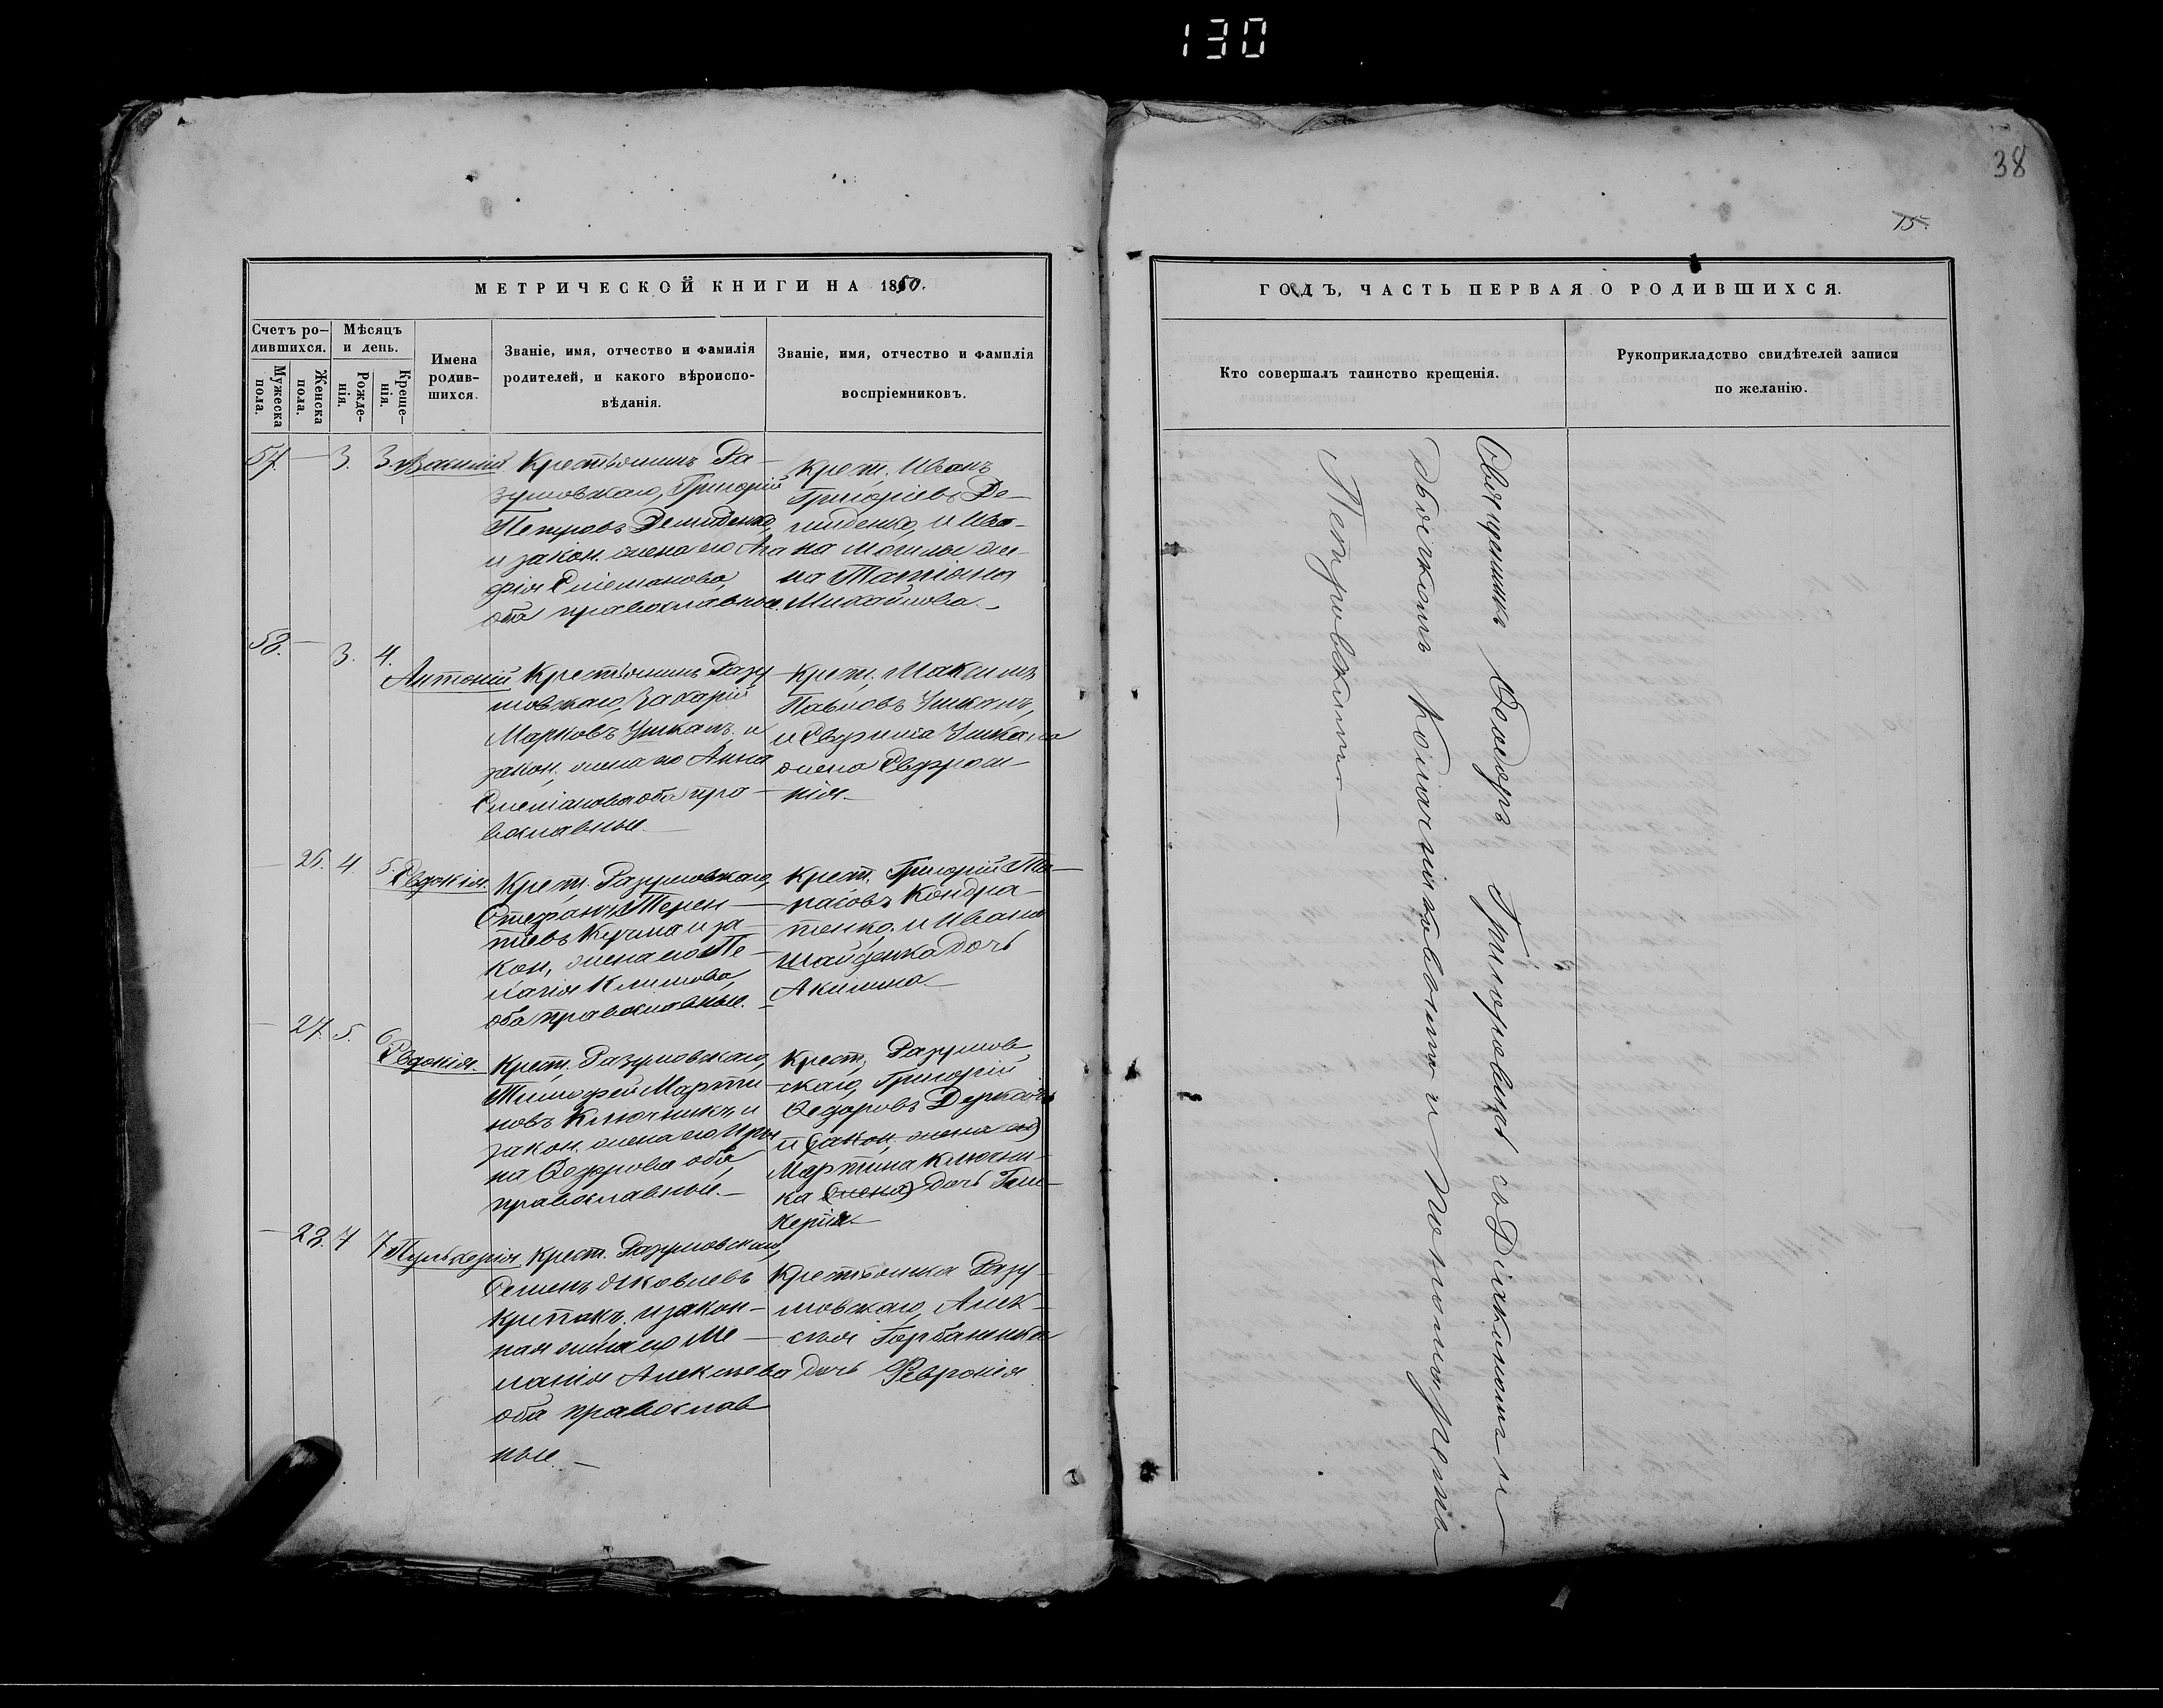 130
38
15.
МЕТРИЧЕСКОЙ КНИГИ НА 1860.
Счетъ ро-
дившихся.
Мужеска
пола.
Женска
пола.
Мѣсяцъ
и день.
Рожде-
нія.
Креще-
нія.
Имена
родив-
шихся.
Званіе, имя, отчество и фамилія
родителей, и какого вѣроиспо-
вѣданія.
Званіе, имя, отчество и фамилія
воспріемниковъ.
57. — 3. 3. Василій
Крестьянинъ Ра-
зумовскаго, Григорій
Петровъ Демиденко,
и закон. жена его Ага
фія Стефанова,
оба православные.
Крест. Иванъ
Григоріевъ Де-
миденко, и Ива-
на жена
Татіяна
Михайлова.
58. — 3. 4.
Антоній
Крестьянинъ Разу
мовскаго, Захарій
Марковъ Ушкалъ и
закон. жена его Анна
Стефанова оба пра-
вославные.
Крест. Максимъ
Павловъ Ушкалъ,
и Ушкала
жена Евфро
нія.
— 26. 4. 5. Евдокія.
Крест. Разумовскаго,
Стефанъ Терен-
тіевъ Кучма и за-
кон. жена его Пе-
лагія Климова,
оба православные.
Крест. Григорій Та-
расовъ Кондра-
тенко, и Ивана
дочь
Акилина
— 27. 5. 6
Евдокія.
Крест. Разумовскаго,
Тимофей Марти-
новъ Ключникъ и
закон. жена его Ири
на Федорова оба
православные.
Крест. Разумов
скаго, Григорій
Федоровъ Деркачъ
и (закон. жена его)
Мартина Ключни-
ка (жена) дочь Гли-
керія
— 28. 7 7 Пульхерія
Крест. Разумовскаго,
Семенъ Яковлевъ
и закон-
ная жена его Ме-
ланія Алексѣева
оба православ
ные.
Крестьянка Разу-
мовскаго, Алек-
сѣя Горбаненка
дочь Февронія
ГОДЪ, ЧАСТЬ ПЕРВАЯ О РОДИВШИХСЯ.
Кто совершалъ таинство крещенія.
Рукоприкладство свидѣтелей записи
по желанію.
Священникъ Ѳеодоръ Григоровичъ съ Діякономъ и
дьячкомъ и пономаремъ
Петровскимъ